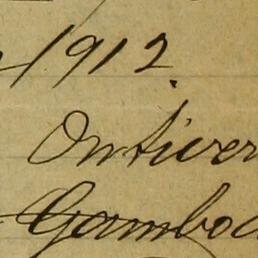 1912.
Ontiver
Gamboa